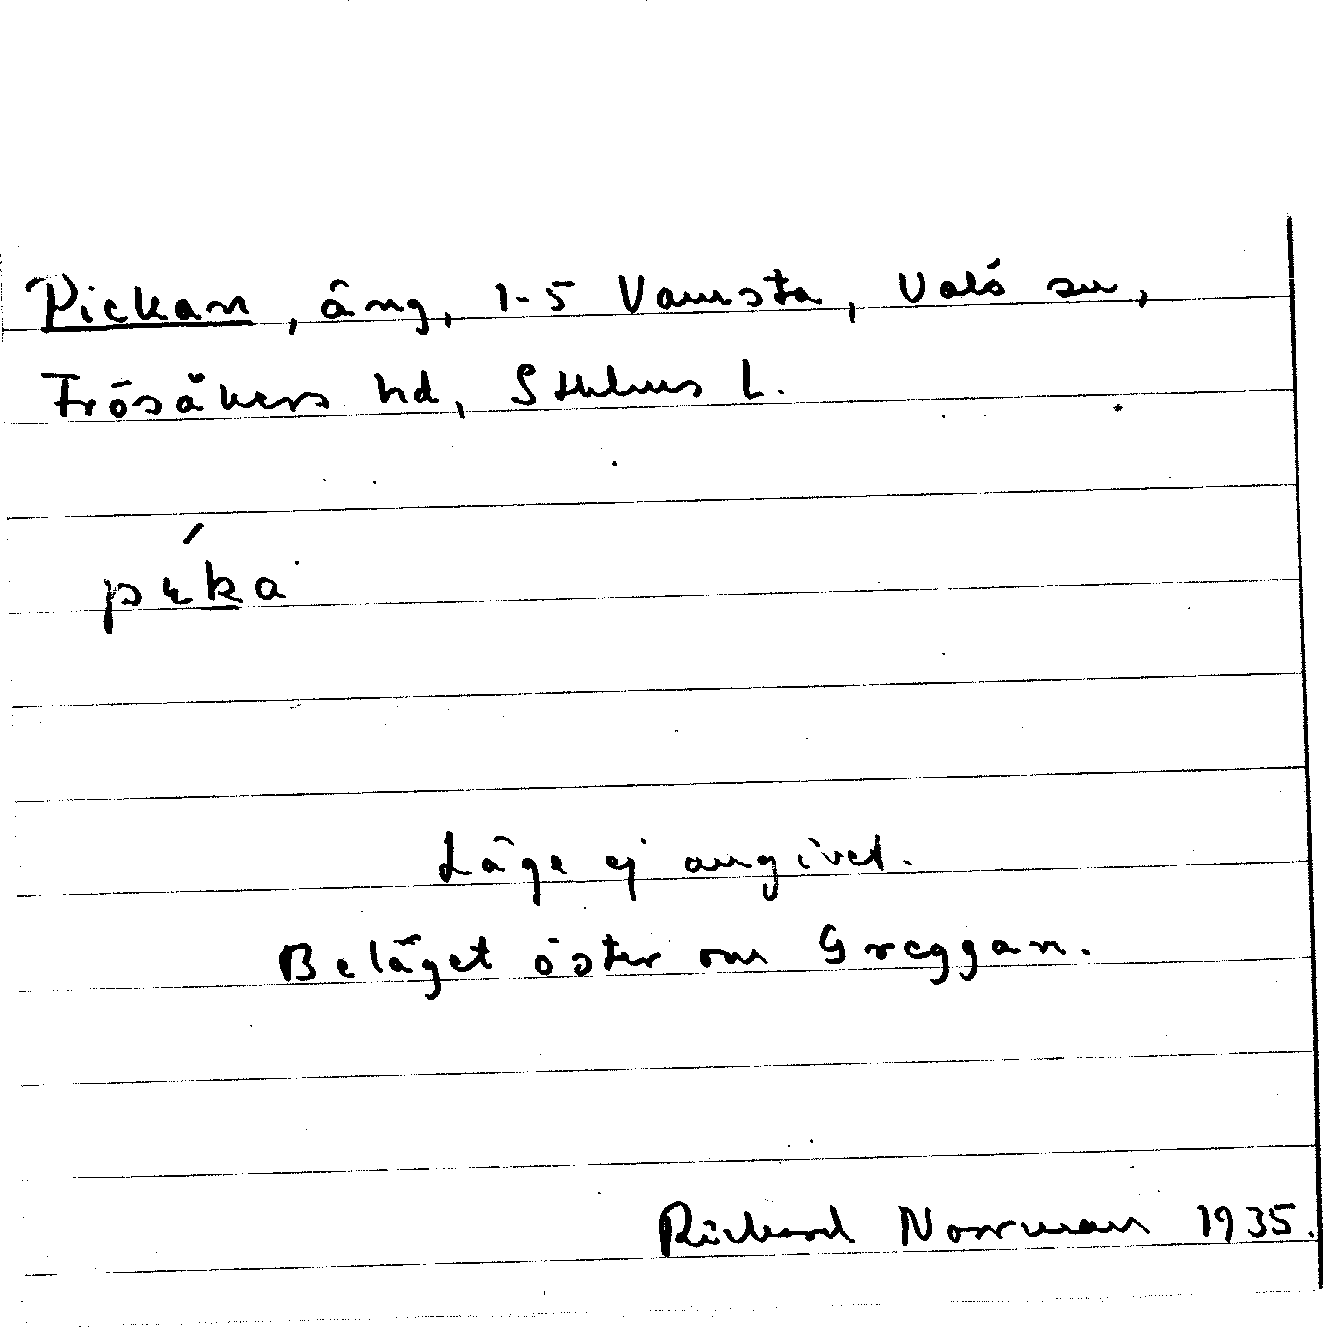 Pickan, äng, 1-5 Vamsta, Valö sn,
Frösåkers hd, Sthlms L.
pɩ́ka
Läge ej angivet.
Beläget öster om Greggan.
Rickard Norrman 1935.